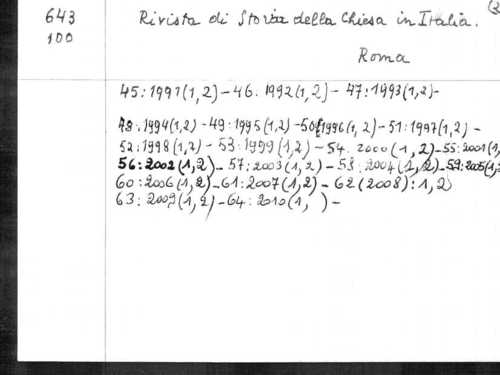 643
100
Rivista di Storia della Chiesa in Italia.
Roma
45:1991(1,2)-46.1992(1,2)-47:1993(1,2)-
48.1994(1,2)-49:1995(1,2)-50(1996(1,2)-51:1997(1,2)-
52:1998(1,2)-53:1999(1,2)-54.2000(1,2)-55:2001(1,
56:2002(1,2)-57:2003(1,2)-58:2004(1,2)-59:2005(1,2
60:2006(1,2)-61:2007(1,2)-62(2008):1,2)
63:2009(1,2)-64:2010(1, )-